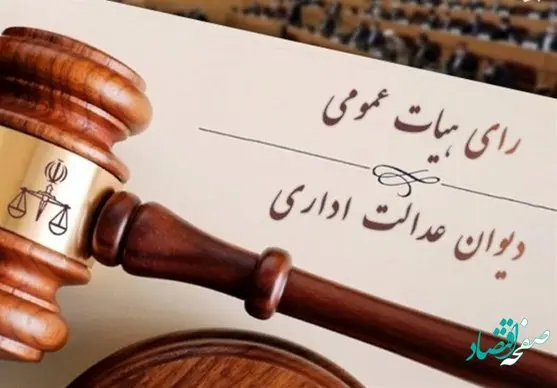 رای هیات عمومی
دیوان عدالت اداری
صفحه اقتصاد